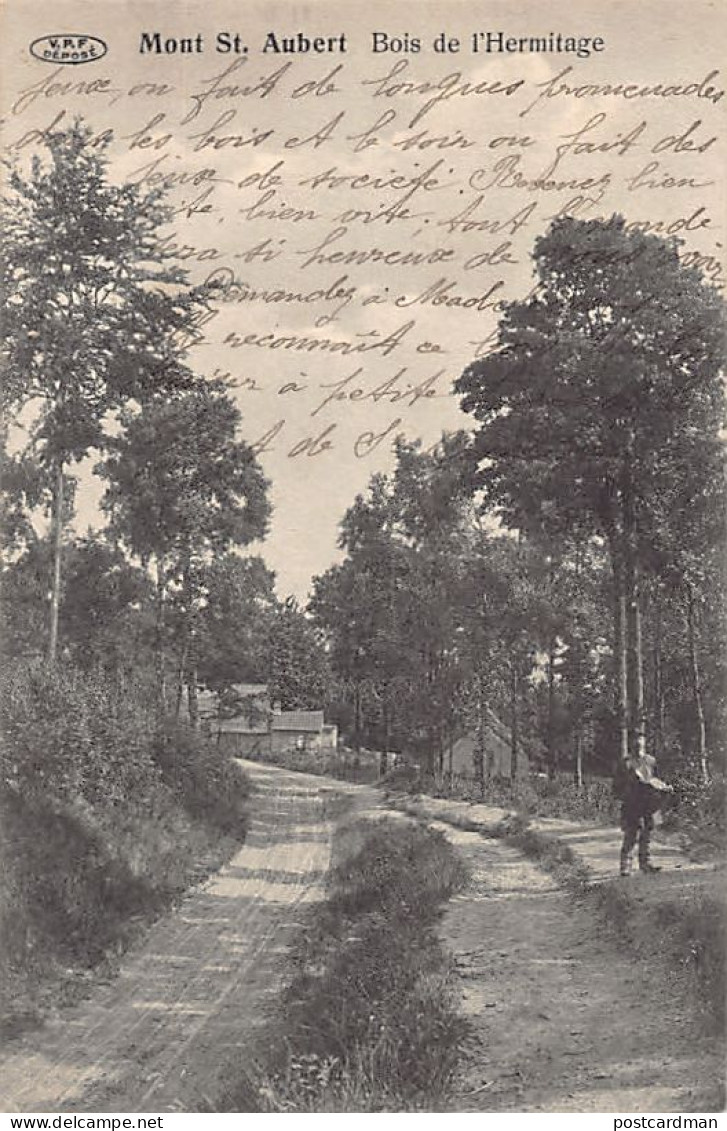 V.P.F.
DÉPOSÉ
Mont St. Aubert Bois de l'Hermitage
jeux, on fait de longues promenades
dans les bois et le soir on fait des
jeux de société. Revenez bien
vite, bien vite, tout le monde
sera si heureux de vous
Demandez à
reconnaît ce
à petite
de S
postcardman